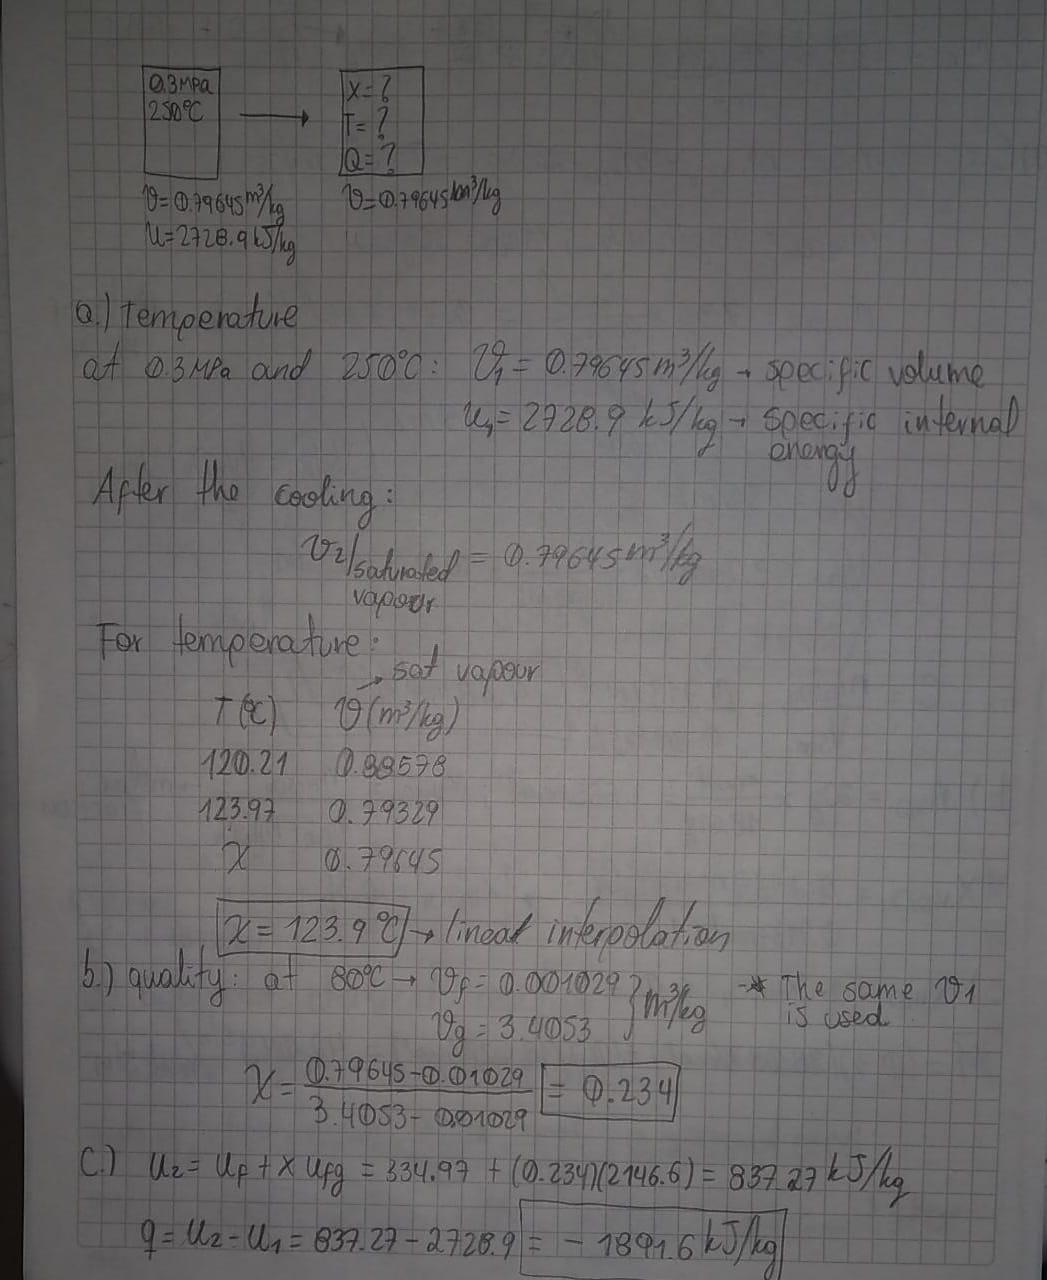 0.3MPa
250°C
X=?
T=?
Q=?
ϑ=0.79645m³/kg
u=2728.9kJ/kg
ϑ=0.79645m³/kg
a.) temperature
at 0.3MPa and 250°C: ϑ₁=0.79645m³/kg → specific volume
u₁=2728.9 kJ/kg → specific internal
energy
After the cooling:
ϑ₂/saturated = 0.79645m³/kg
vapour
For temperature:
→ sat vapour
T(°C) ϑ(m³/kg)
120.21 0.88578
123.97 0.79329
X 0.79645
x=123.9°C → linear interpolation
b.) quality: at 80°C → ϑf=0.001029 } m³/kg → * The same ϑ1
ϑg=3.4053 is used
X = 0.79645-0.01029 = 0.234
3.4053-0.01029
C.) u₂=uf+x ufg = 334.97 + (0.234)(2146.6) = 837.27 kJ/kg
q=u₂-u₁=837.27-2728.9 = -1891.6 kJ/kg